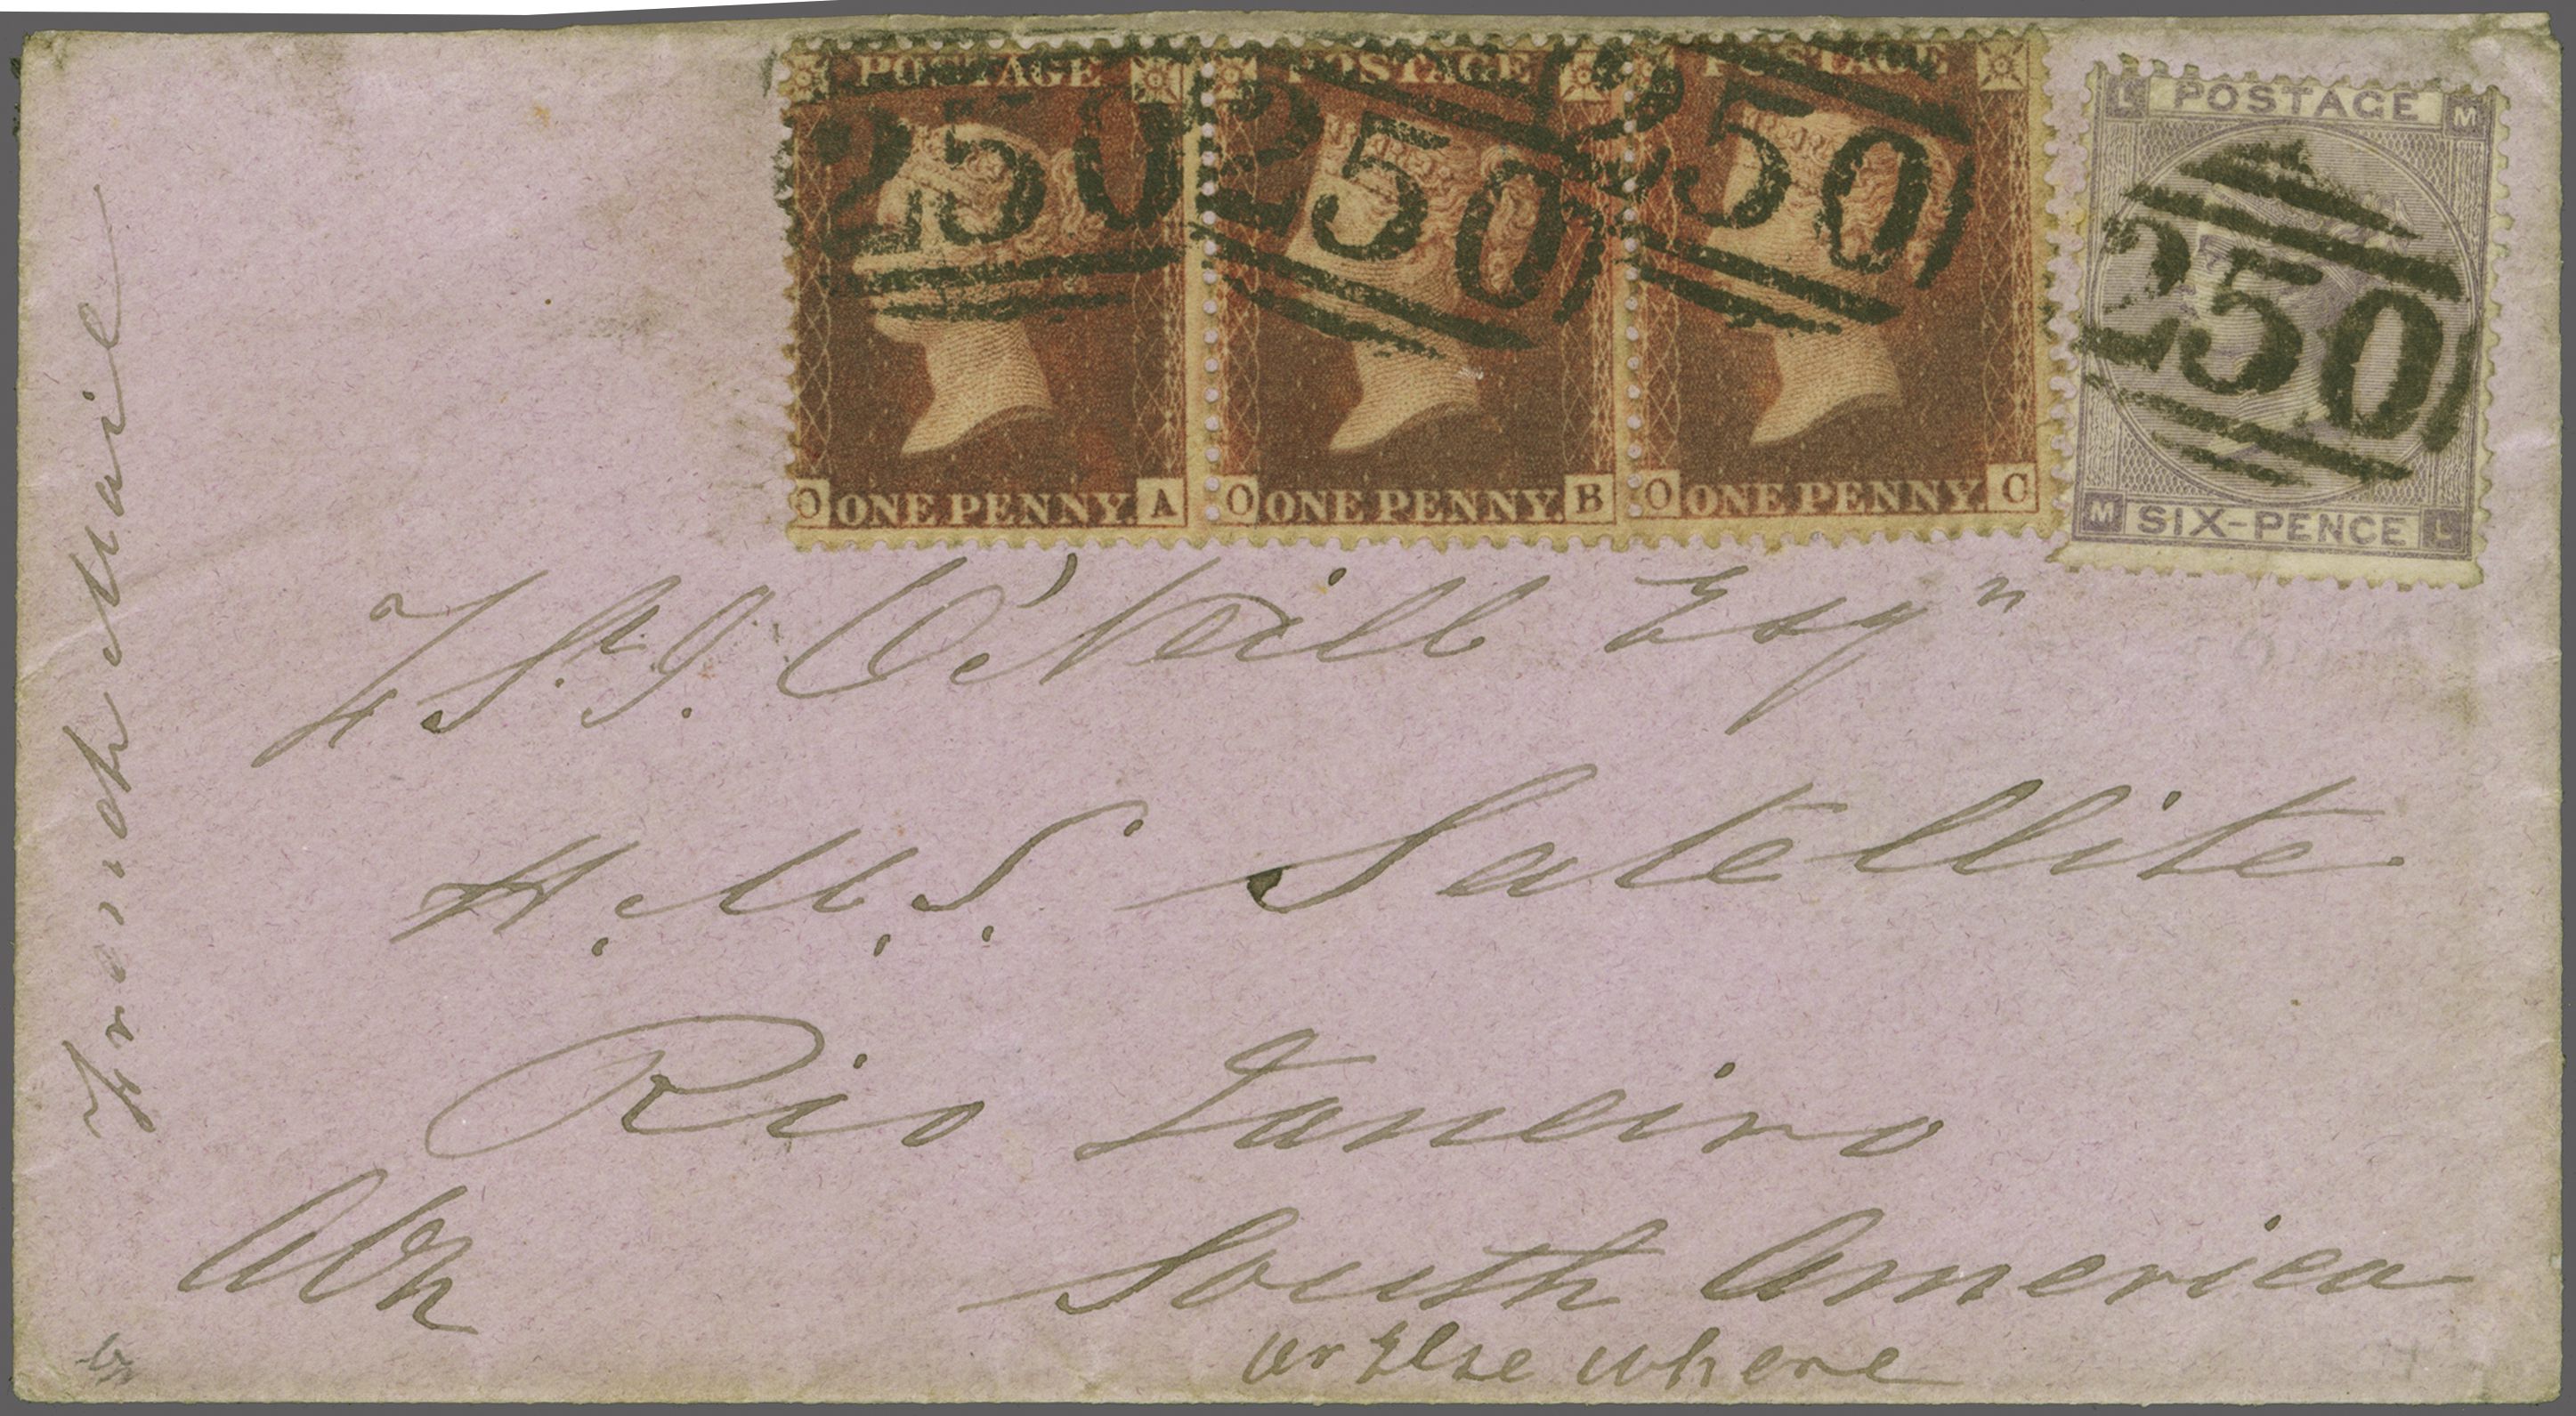 POSTAGE POSTAGE POSTAGE
250 250 250
O ONE PENNY. A O ONE PENNY. B O ONE PENNY. C
L POSTAGE M
250
M SIX-PENCE L
French Mail
O'Neill Esqr
H.M.S. Satellite
Rio Janeiro
South America
or Else where